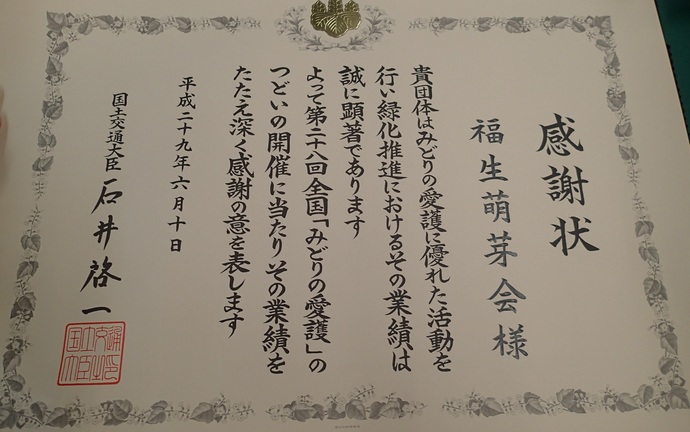 感謝状
福生萌芽会様
貴団体はみどりの愛護に優れた活動を
行い緑化推進におけるその業績は
誠に顕著であります
よって第二八回全国「みどりの愛護」の
つどいの開催に当たりその業績を
たたえ深く感謝の意を表します
平成二十九年六月十日
国土交通大臣 石井啓一
国土交通大臣之印